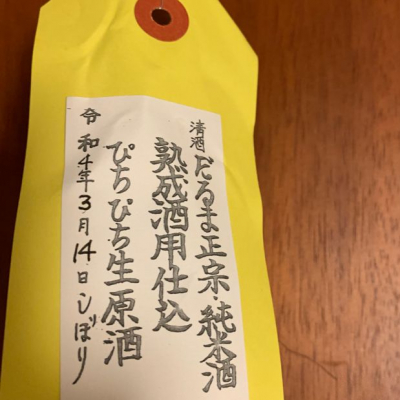 清酒 だるま正宗・純米酒
熟成酒用仕込
ぴちぴち生原酒
令和4年3月14日しぼり